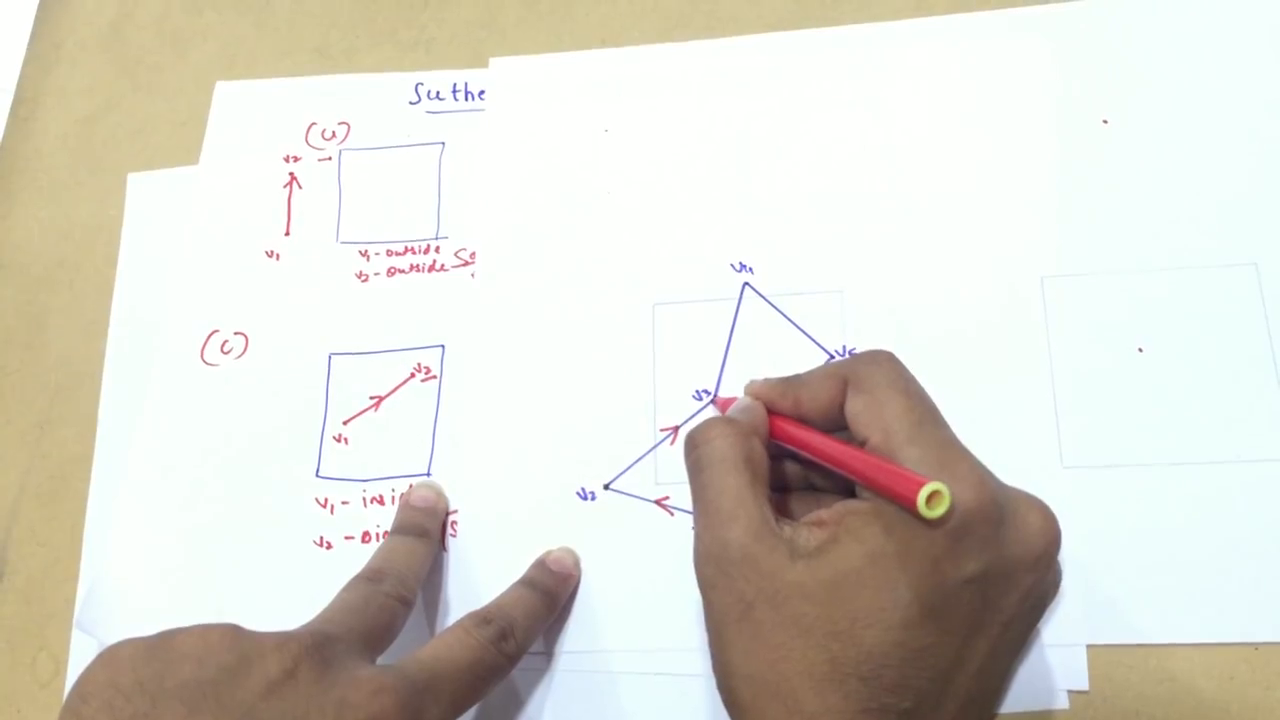 Suthe
(a)
v2
v1
v1-outside
v2-outside
(c)
v2
v1
v1-insi
v2
v4
v3
v2